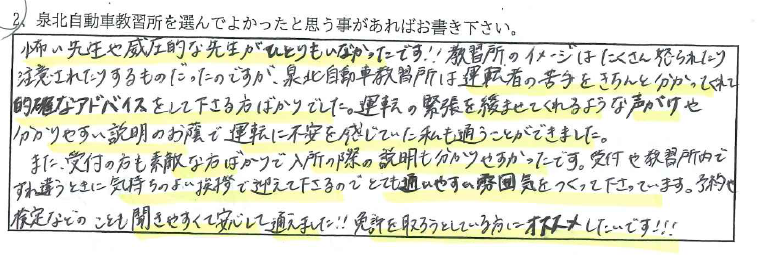 2. 泉北自動車教習所を選んでよかったと思う事があればお書き下さい。
怖い先生や威圧的な先生がひとりもいなかったです!! 教習所のイメージはたくさん怒られたり
注意されたりするものだったのですが、泉北自動車教習所は運転者の苦手をきちんと分かってくれて
的確なアドバイスをして下さる方ばかりでした。運転の緊張を緩ませてくれるような声がけや
分かりやすい説明のお蔭で運転に不安を感じていた私も通うことができました。
また、受付の方も素敵な方ばかりで入所の際の説明も分かりやすかったです。受付や教習所内で
すれ違うときに気持ちのよい挨拶で迎えて下さるのでとても通いやすい雰囲気をつくって下さっています。予約や
検定などのことも聞きやすくて安心して通えました!! 免許を取ろうとしている方にオススメしたいです!!!